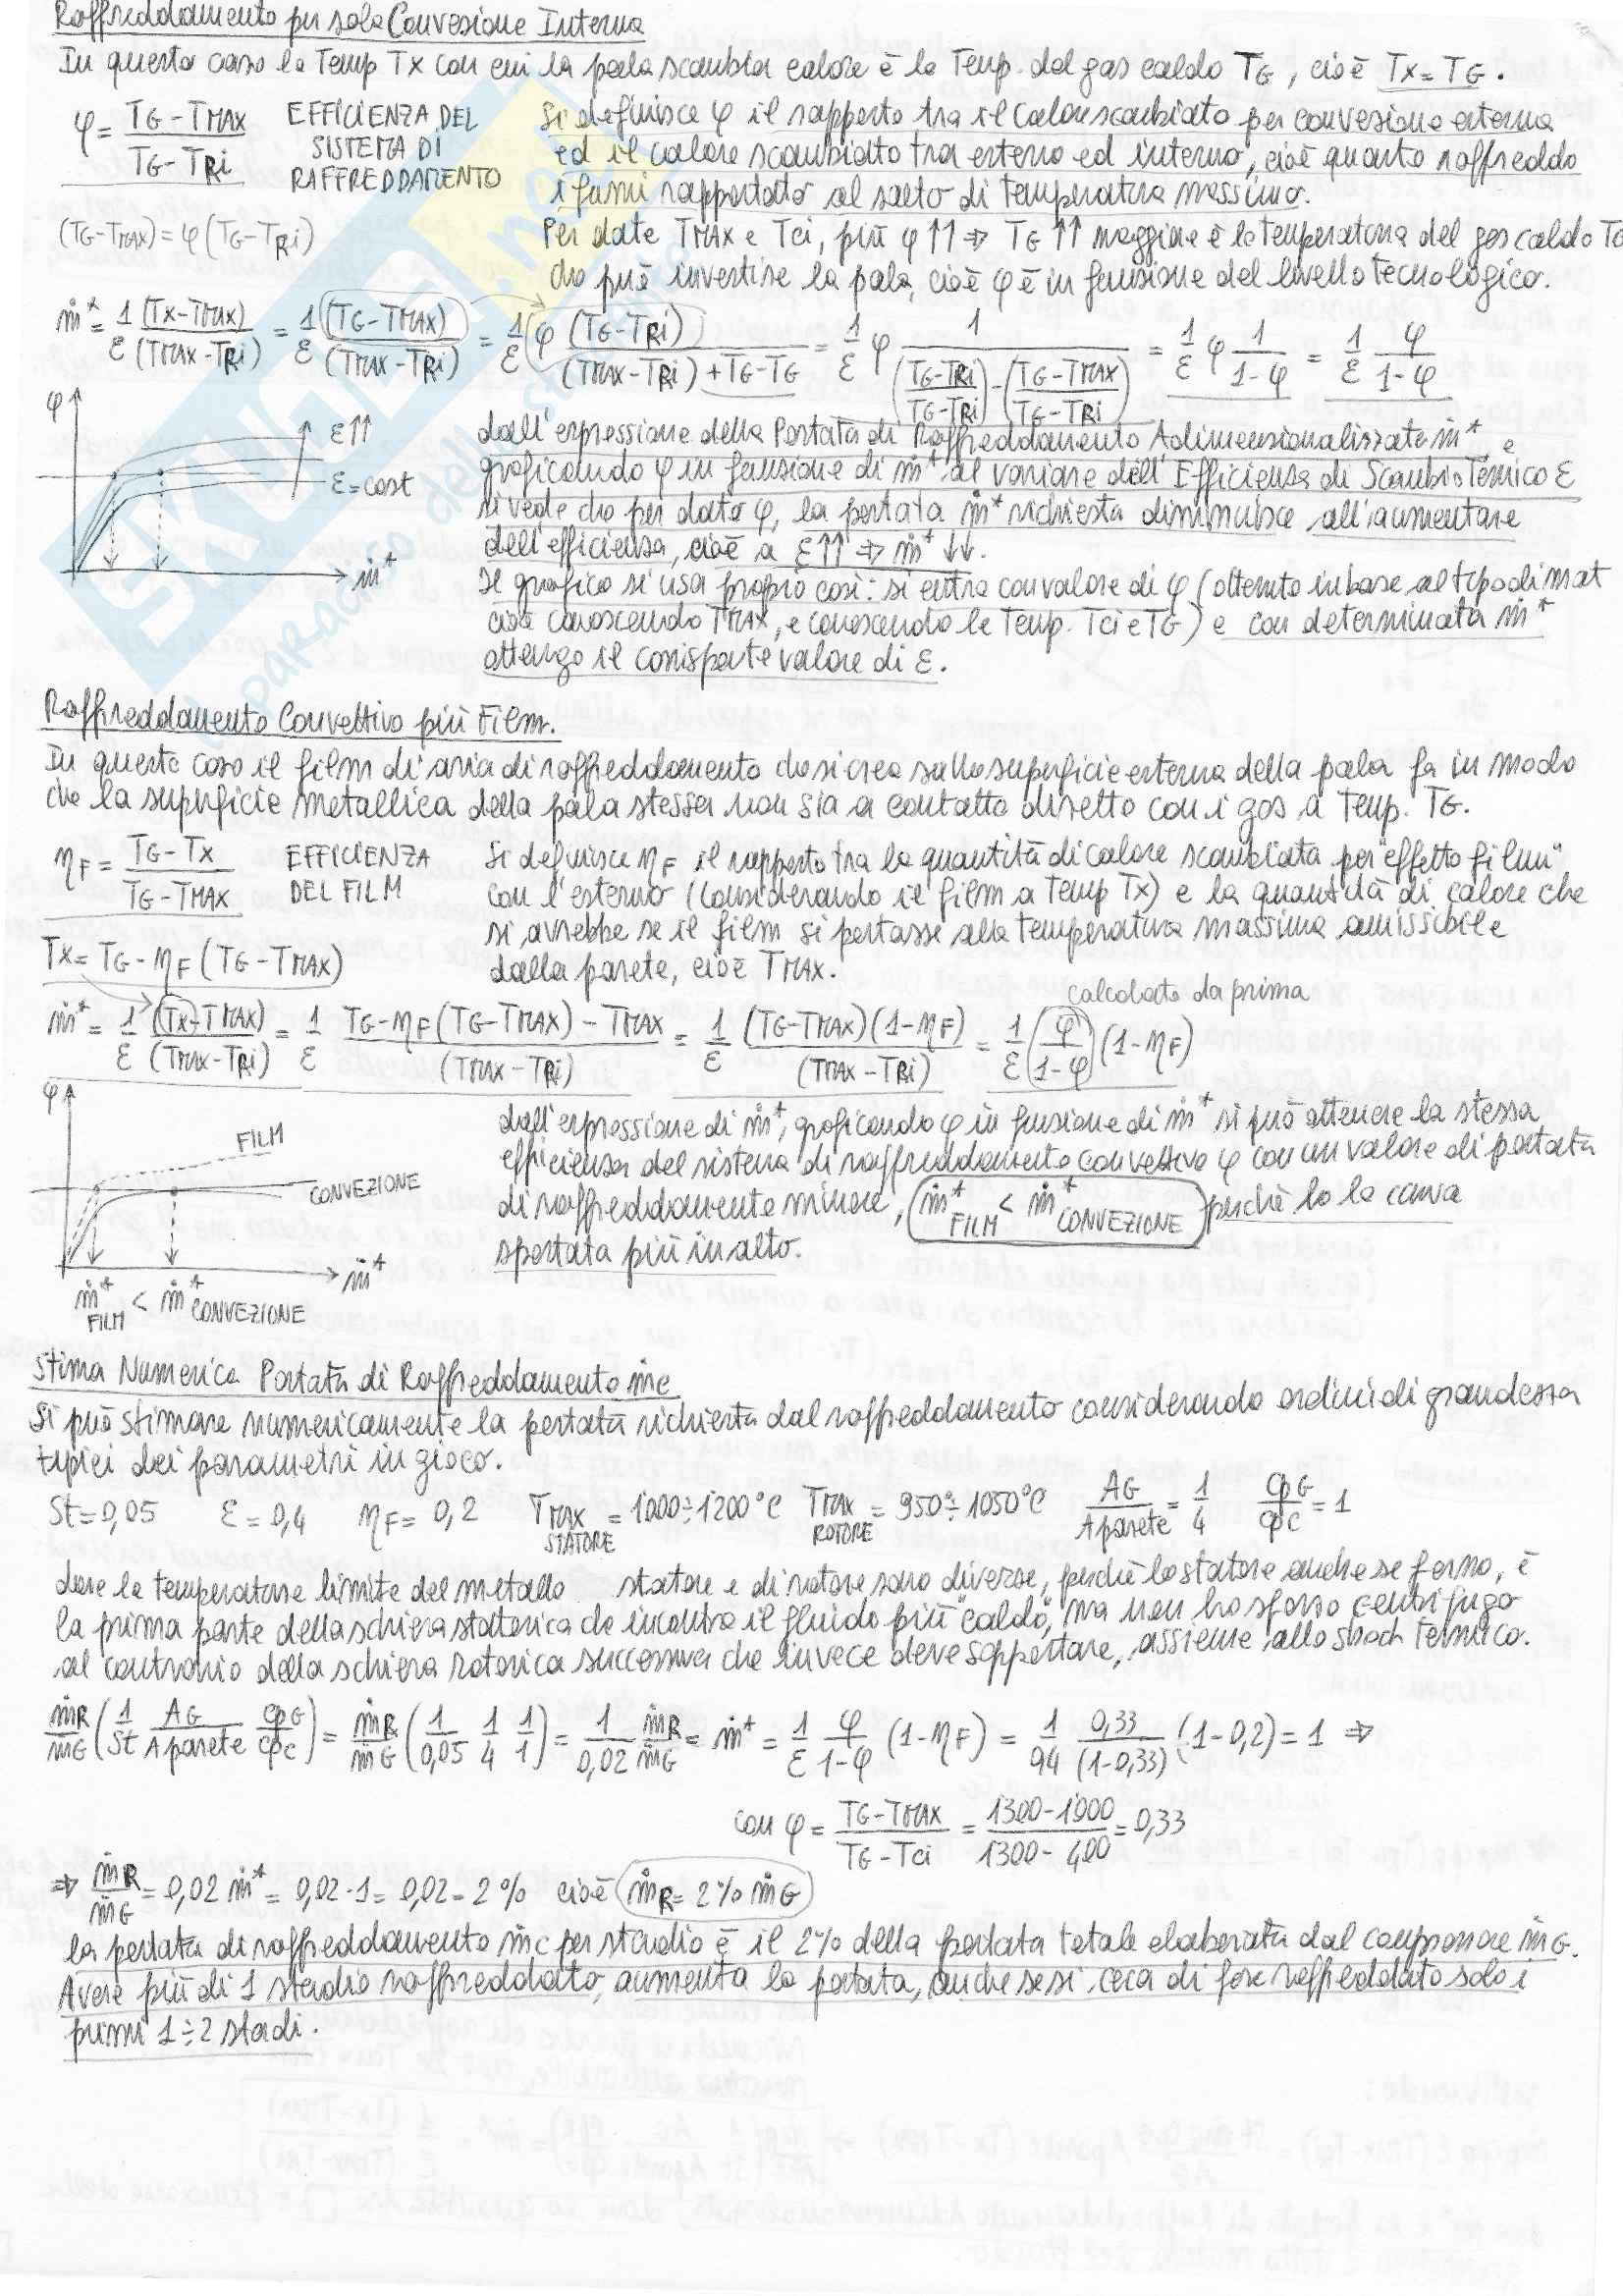 Raffreddamento per sola Convezione Interna
In questo caso la Temp Tx con cui la pala scambia calore è la Temp. del gas caldo TG, cioè Tx = TG.
φ = (TG - TMAX)/(TG - TRi) EFFICIENZA DEL SISTEMA DI RAFFREDDAMENTO
Si definisce φ il rapporto tra il calore scambiato per convezione esterna
ed il calore scambiato tra esterno ed interno, cioè quanto raffreddo
i fumi rapportato al salto di temperatura massimo.
(TG - TMAX) = φ (TG - TRi)
Per date TMAX e Tci, più φ↑↑ ⇒ TG↑↑ maggiore è la temperatura del gas caldo TG
che può investire la pala, cioè φ è in funzione del livello tecnologico.
ṁ* = 1/ε (Tx - TMAX)/(TMAX - TRi) = 1/ε (TG - TMAX)/(TMAX - TRi) = 1/ε φ (TG - TRi)/((TMAX - TRi) + TG - TG) = 1/ε φ 1/((TG - TRi)/(TG - TRi) - (TG - TMAX)/(TG - TRi)) = 1/ε φ 1/(1-φ) = 1/ε φ/(1-φ)
φ
ε↑↑
ε = cost
ṁ*
dall'espressione della Portata di Raffreddamento Adimensionalizzata ṁ*, e
graficando φ in funzione di ṁ* al variare dell'Efficienza di Scambio Termico ε
si vede che per dato φ, la portata ṁ* richiesta diminuisce all'aumentare
dell'efficienza, cioè a ε↑↑ ⇒ ṁ*↓↓.
Il grafico si usa proprio così: si entra con valore di φ (ottenuto in base al tipo di mat
cioè conoscendo TMAX, e conoscendo le Temp. Tci e TG) e con determinata ṁ*
ottengo il corrisp.te valore di ε.
Raffreddamento Convettivo più Film.
In questo caso il film di aria di raffreddamento che si crea sulla superficie esterna della pala fa in modo
che la superficie metallica della pala stessa non sia a contatto diretto con i gas a Temp. TG.
ηF = (TG - Tx)/(TG - TMAX) EFFICIENZA DEL FILM
Si definisce ηF il rapporto tra la quantità di calore scambiata per "effetto film"
con l'esterno (considerando il film a Temp Tx) e la quantità di calore che
si avrebbe se il film si portasse alla temperatura massima amissibile
dalla parete, cioè TMAX.
Tx = TG - ηF (TG - TMAX)
calcolato da prima
ṁ* = 1/ε (Tx - TMAX)/(TMAX - TRi) = 1/ε (TG - ηF (TG - TMAX) - TMAX)/(TMAX - TRi) = 1/ε (TG - TMAX)(1 - ηF)/(TMAX - TRi) = 1/ε (φ/(1-φ)) (1 - ηF)
φ
FILM
CONVEZIONE
ṁ*
ṁ*FILM < ṁ*CONVEZIONE
dall'espressione di ṁ*, graficando φ in funzione di ṁ* si può ottenere la stessa
efficienza del sistema di raffreddamento convettivo φ con un valore di portata
di raffreddamento minore, ṁ*FILM < ṁ*CONVEZIONE perchè ho la curva
spostata più in alto.
Stima Numerica Portata di Raffreddamento ṁc
Si può stimare numericamente la portata richiesta dal raffreddamento considerando ordini di grandezza
tipici dei parametri in gioco.
St = 0,05 ε = 0,4 ηF = 0,2 TMAX STATORE = 1000÷1200°C TMAX ROTORE = 950÷1050°C AG/Aparete = 1/4 cpG/cpc = 1
dove le temperature limite del metallo statore e di rotore sono diverse, perchè lo statore anche se fermo, è
la prima parte della schiera statorica che incontra il fluido più "caldo", ma non ho sforzo centrifugo
al contrario della schiera rotorica successiva che invece deve sopportare, assieme allo shock termico.
ṁR/ṁG (1/St AG/Aparete cpG/cpc) = ṁR/ṁG (1/0,05 1/4 1/1) = 1/0,02 ṁR/ṁG = ṁ* = 1/ε φ/(1-φ) (1 - ηF) = 1/0,4 0,33/(1-0,33) (1-0,2) = 1 ⇒
con φ = (TG - TMAX)/(TG - Tci) = (1300 - 1000)/(1300 - 400) = 0,33
⇒ ṁR/ṁG = 0,02 ṁ* = 0,02 · 1 = 0,02 = 2% cioè ṁR = 2% ṁG
la portata di raffreddamento ṁc per stadio è il 2% della portata totale elaborata dal compressore ṁG.
Avere più di 1 stadio raffreddato, aumenta la portata, anche se si cerca di fare raffreddato solo i
primi 1÷2 stadi.